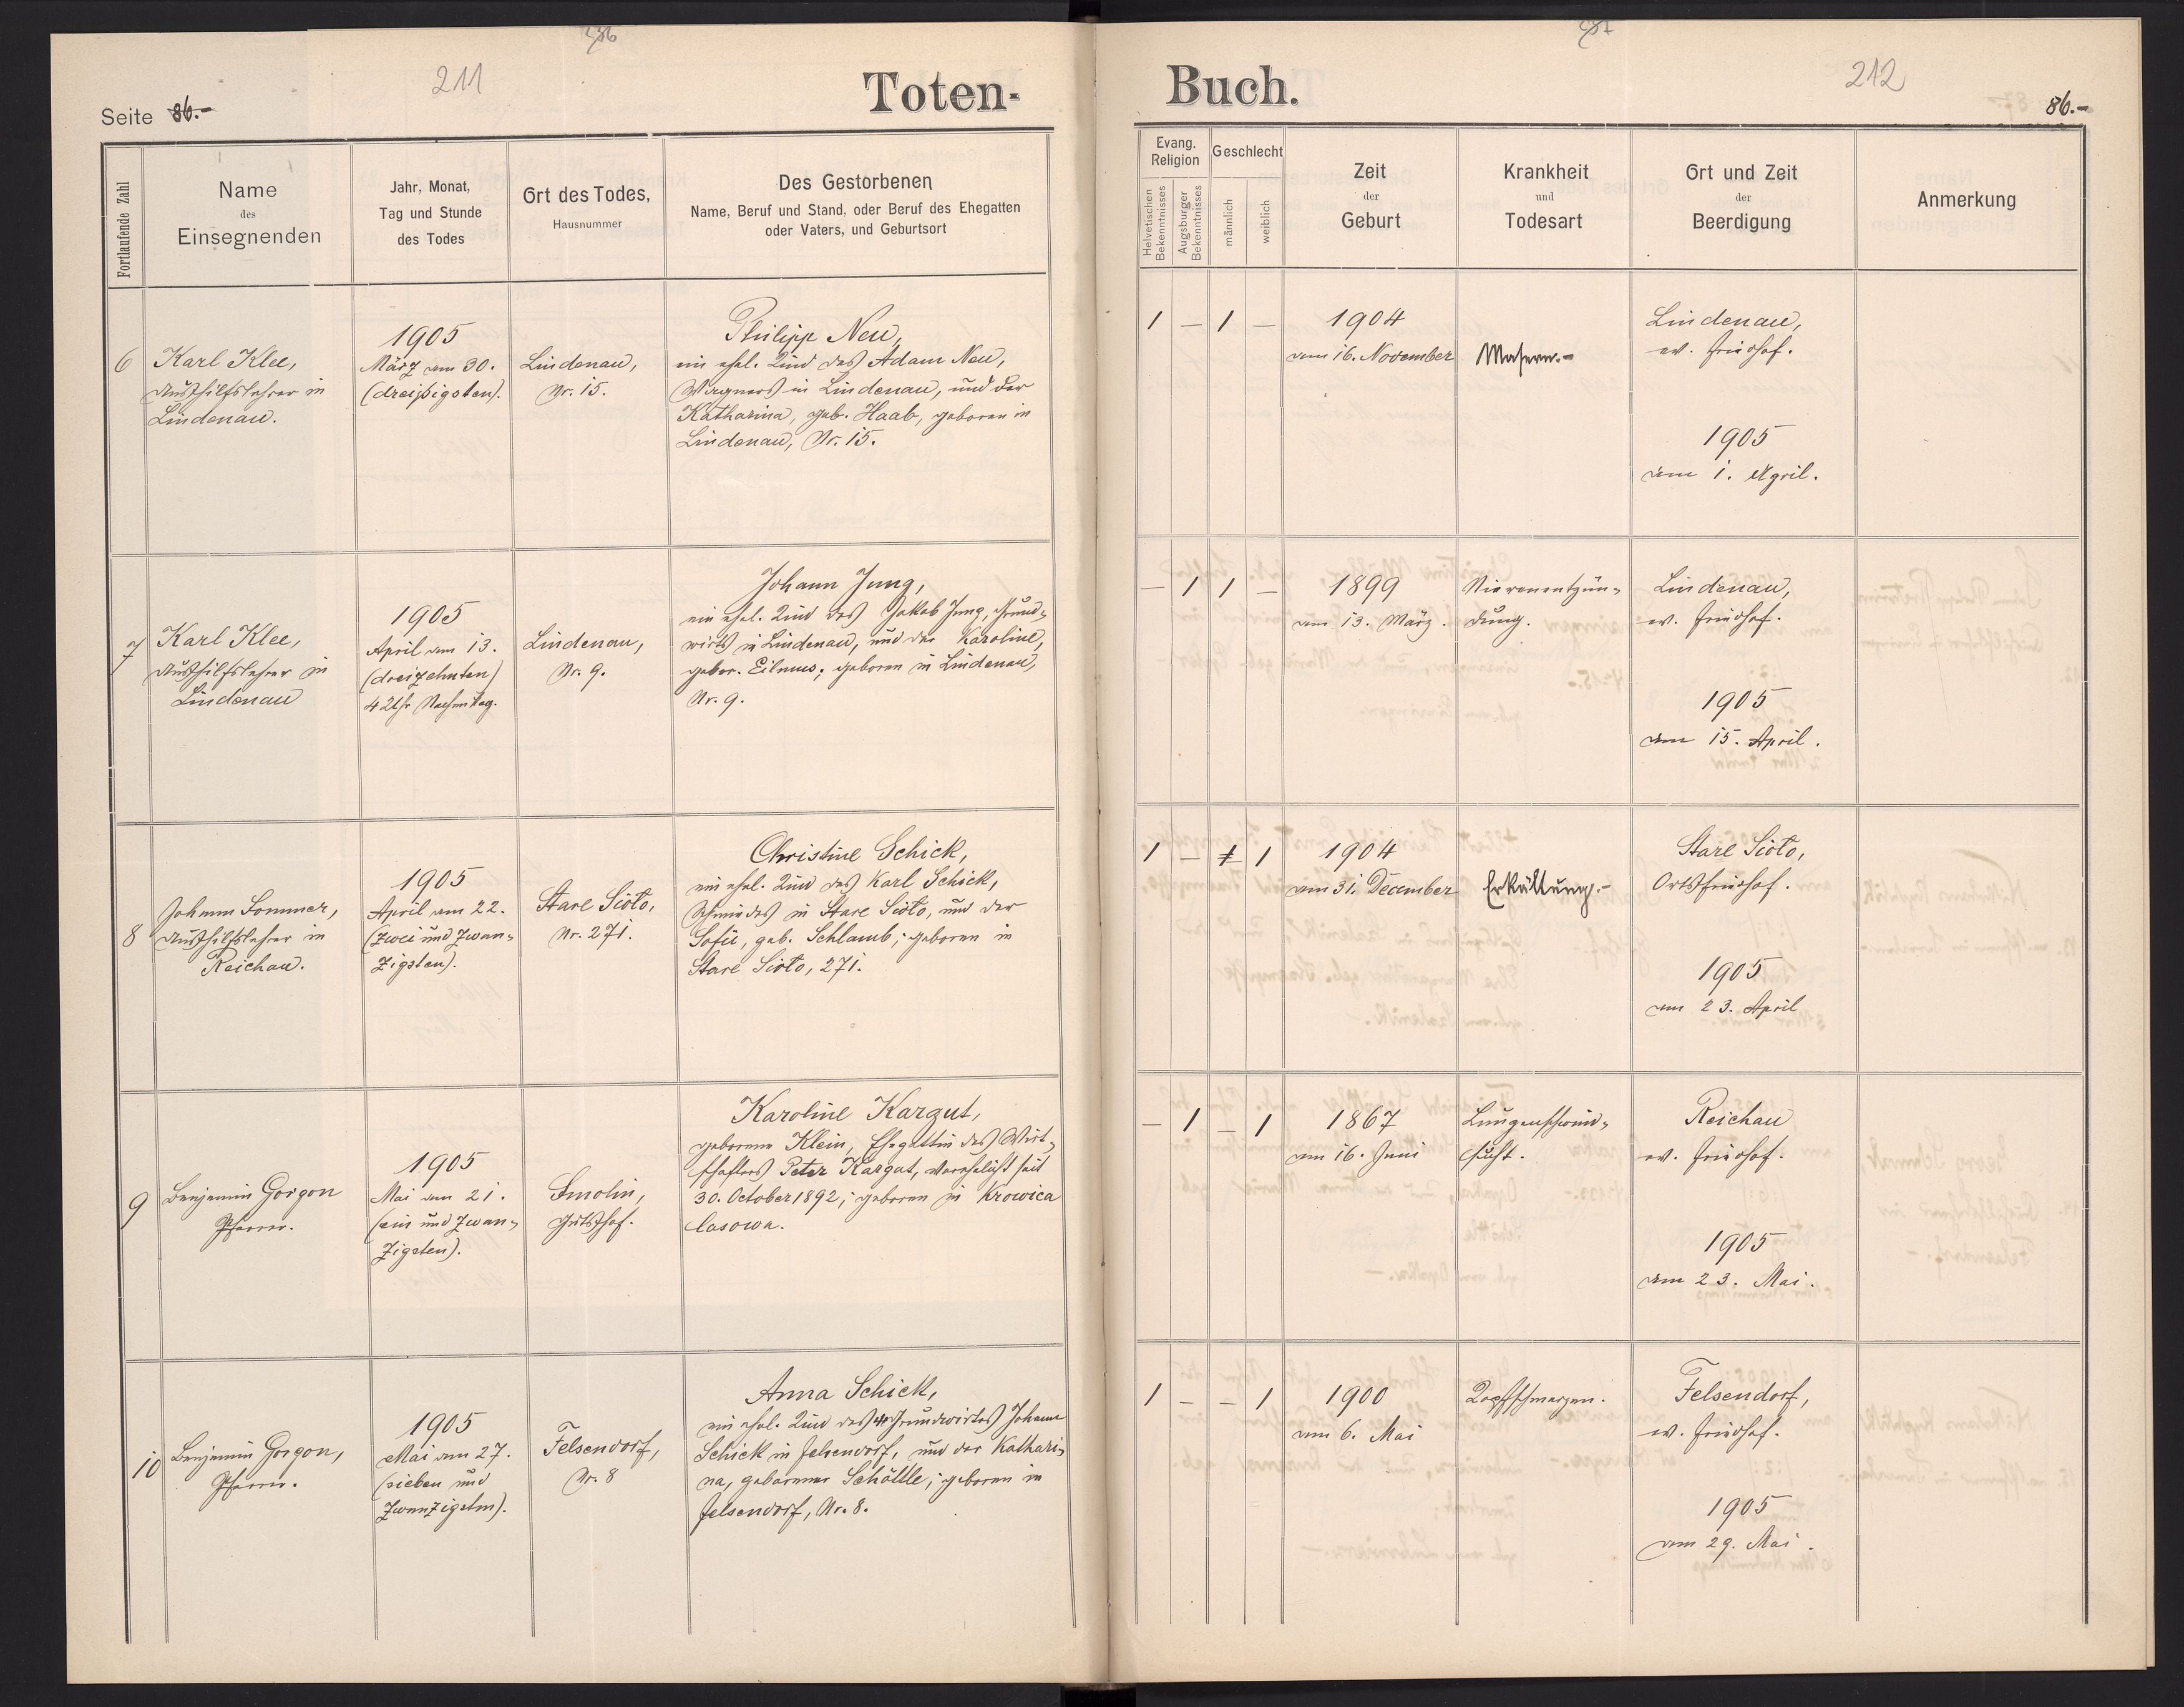 211
Toten-
Seite 86.-
Fortlaufende Zahl
Name
des
Einsegnenden
Jahr, Monat,
Tag und Stunde
des Todes
Ort des Todes,
Hausnummer
Des Gestorbenen
Name, Beruf und Stand, oder Beruf des Ehegatten
oder Vaters, und Geburtsort
6
Karl Klee,
Aushilfslehrer in
Lindenau.
1905
März am 30.
(dreißigsten).
Lindenau,
Nr. 15.
Philipp Neu,
ein ehel. Kind des Adam Neu,
Wagners in Lindenau, und der
Katharina, geb. Haab, geboren in
Lindenau, Nr. 15.
7
Karl Klee,
Aushilfslehrer in
Lindenau
1905
April am 13.
(dreizehnten)
4 Uhr Nachmittag.
Lindenau,
Nr. 9.
Johann Jung,
ein ehel. Kind des Jakob Jung, Grund-
wirts in Lindenau, und der Karoline,
gebor. Eilmus; geboren in Lindenau,
Nr. 9.
8
Johann Sommer,
Aushilfslehrer in
Reichau.
1905
April am 22.
(zwei und zwan-
zigsten).
Stare Sioło,
Nr. 271.
Christine Schick,
ein ehel. Kind des Karl Schick,
Schmiedes in Stare Sioło, und der
Sofie, geb. Schlamb; geboren in
Stare Sioło, 271.
9
Benjamin Gorgon
Pfarrer.
1905
Mai am 21.
(ein und zwan-
zigsten).
Smolin,
Gutshof.
Karoline Kargut,
geborene Klein, Ehegattin des Wirt-
schafters Peter Kargut, verehelicht seit
30. October 1892; geboren in Krowica
lasowa.
10
Benjamin Gorgon,
Pfarrer.
1905
Mai am 27.
(sieben und
zwanzigsten).
Felsendorf,
Nr. 8
Anna Schick,
ein ehel. Kind des Grundwirtes Johann
Schick in Felsendorf, und der Kathari-
na, geborener Schöttle; geboren in
Felsendorf, Nr. 8.
212
Buch.
86.-
Evang.
Religion
Helvetischen
Bekenntnisses
Augsburger
Bekenntnisses
Geschlecht
männlich
weiblich
Zeit
der
Geburt
Krankheit
und
Todesart
Ort und Zeit
der
Beerdigung
Anmerkung
1 — 1 —
1904
am 16. November
Masern.-
Lindenau,
ev. Friedhof.
1905
am 1. April.
— 1 1 —
1899
am 13. März.
Nierenentzün-
dung.
Lindenau,
ev. Friedhof.
1905
am 15. April.
1 — 1 1
1904
am 31. December
Erkältung.-
Stare Sioło,
Ortsfriedhof.
1905
am 23. April
— 1 — 1
1867
am 16. Juni
Lungenschwind-
sucht.
Reichau
ev. Friedhof.
1905
am 23. Mai.
1 — — 1
1900
am 6. Mai
Kopfschmerzen.
Felsendorf,
ev. Friedhof.
1905
am 29. Mai.